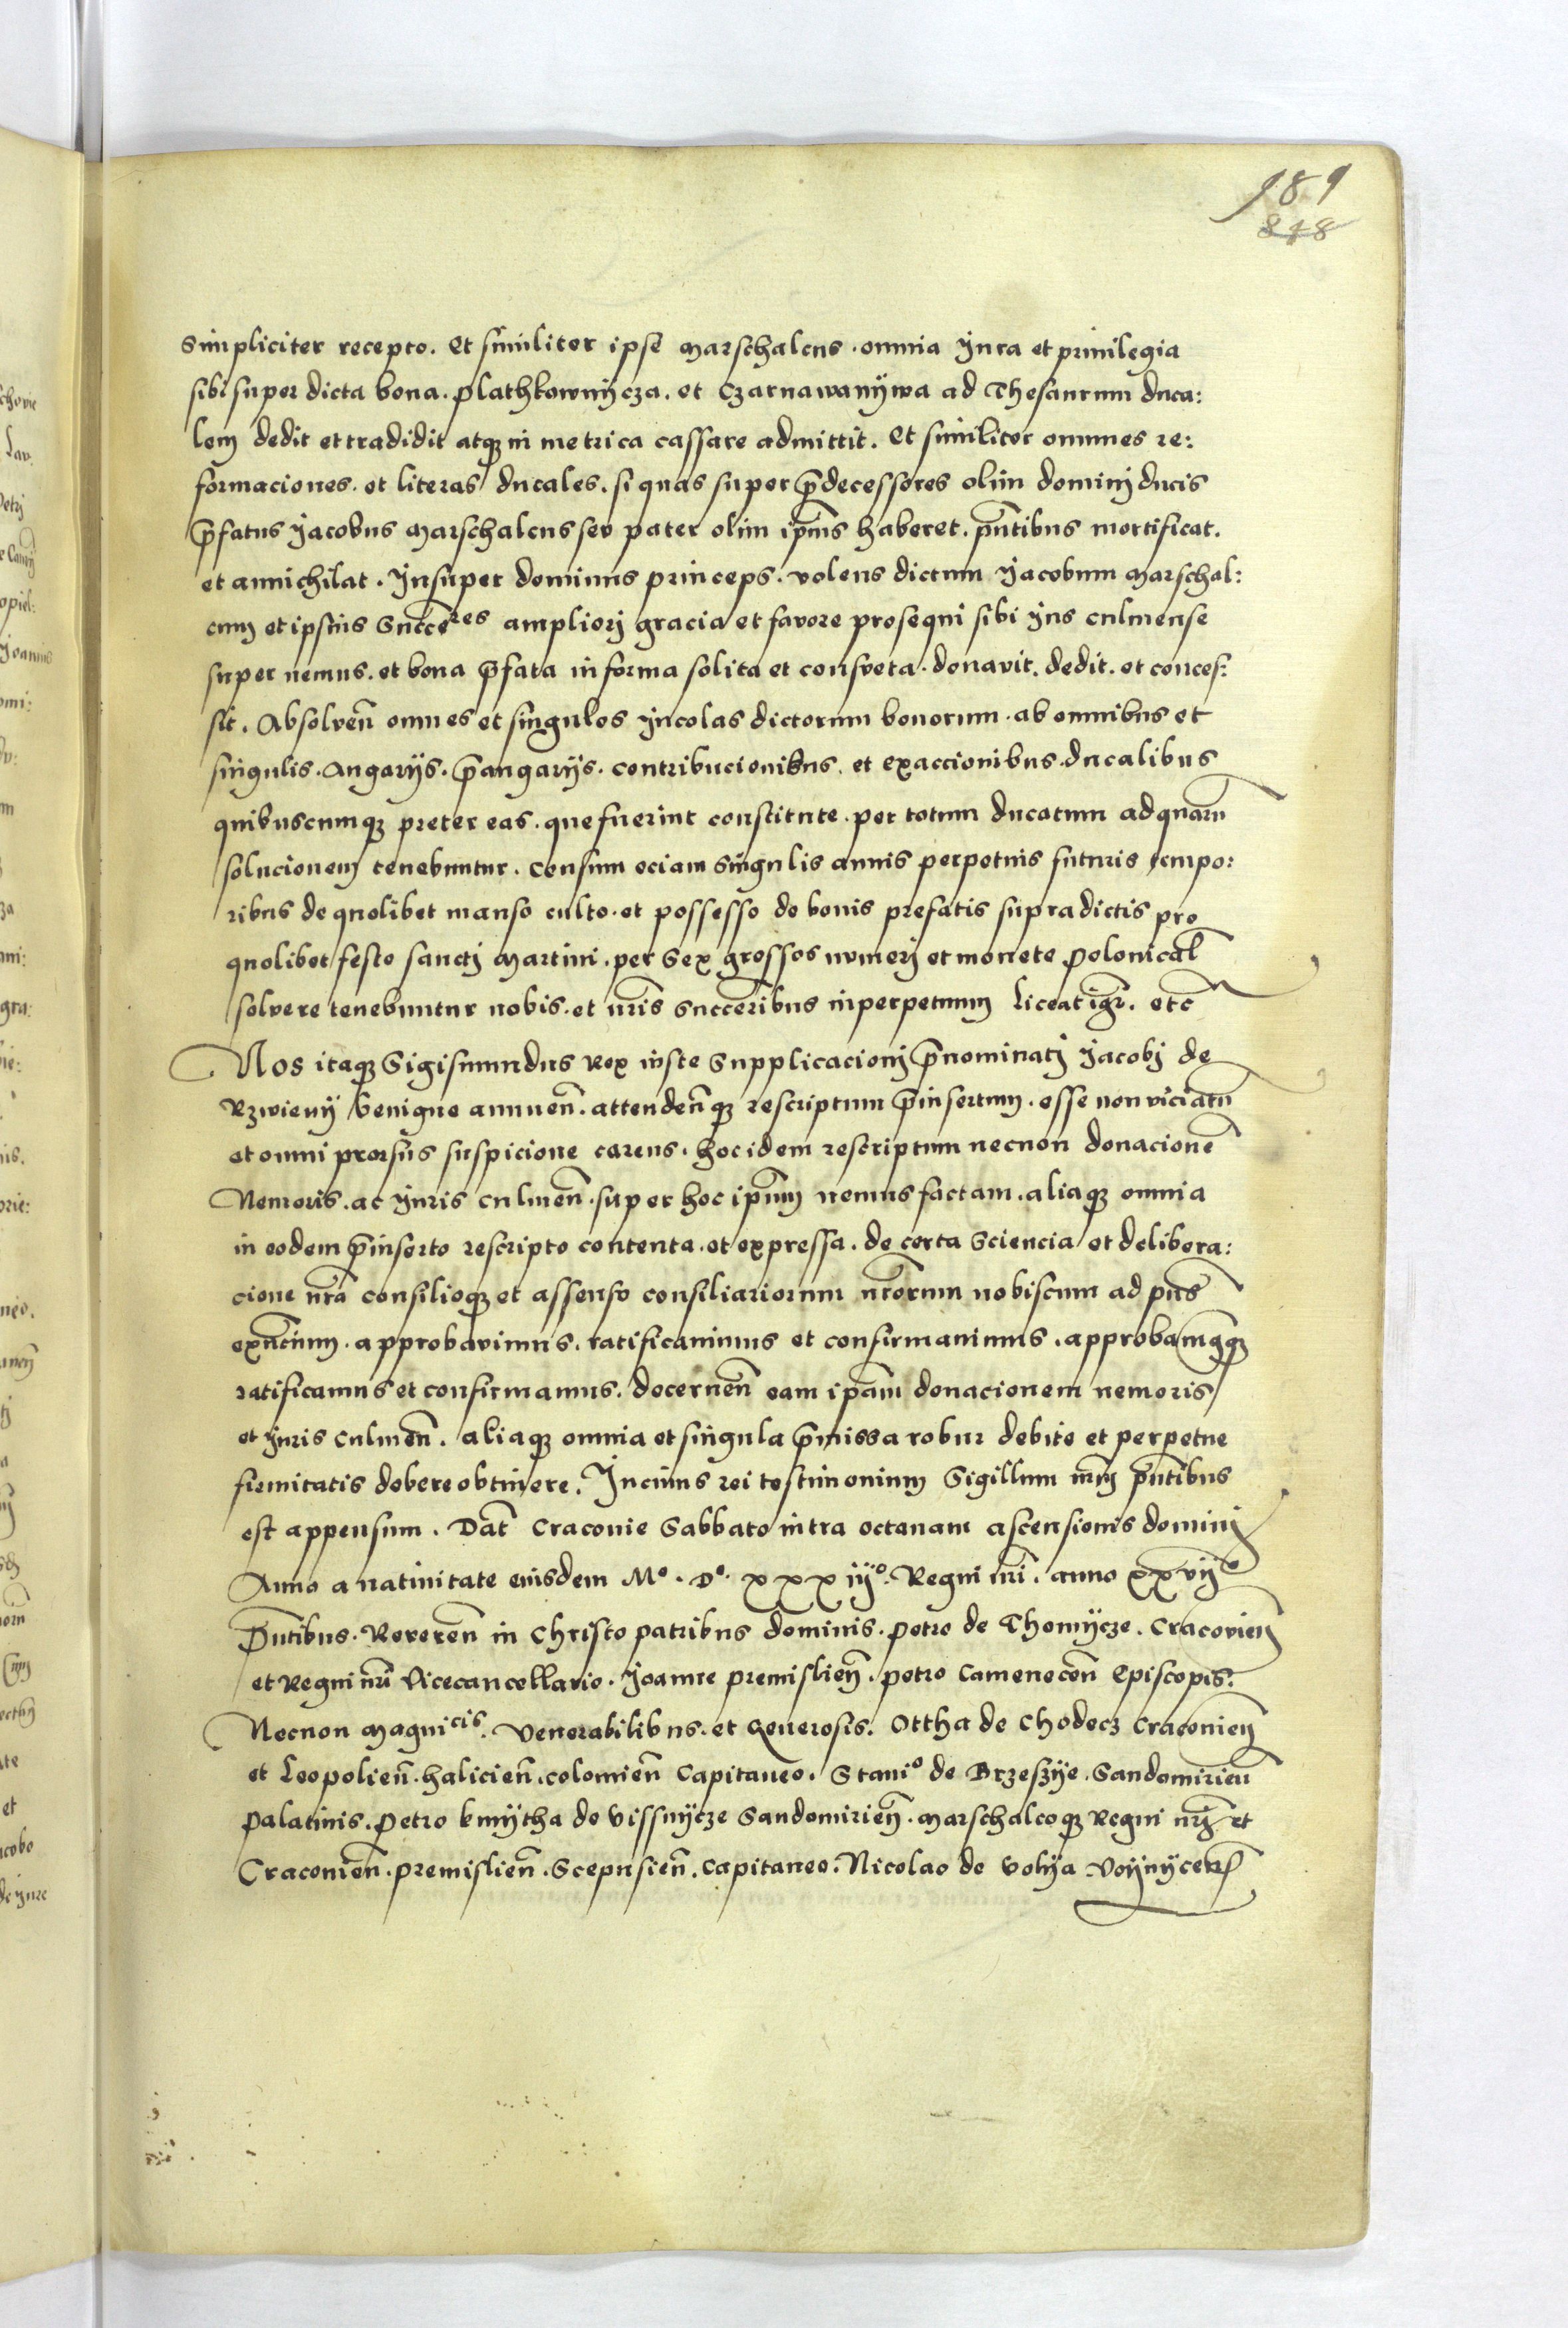 189
848
simpliciter recepto. Et similiter ipse Marschalcus. omnia Jura et privilegia
sibi super dicta bona. Plathkownÿcza. et Czarnawanÿwa ad Thesaurum duca:
lem dedit et tradidit atqꝫ in metrica cassare admittit. Et similiter omnes re:
formaciones. et literas ducales. si quas super p̄decessores olim dominj ducis
p̄fatus Jacobus Marschalcus seu pater olim ip̄ius haberet. pn̄tibus mortificat.
et annichilat. Insuper dominus princeps. volens dictum Jacobum Marschal:
cum et ipsius Succeres ampliorj gracia et favore prosequi sibi Jus culmense
super nemus. et bona p̄fata in forma solita et consveta. donavit. dedit. et conces:
sit. Absolven̄ omnes et singulos Jncolas dictorum bonorum. ab omnibus et
singulis. Angarijs. p̄angarijs. contribucionibus. et exaccionibus. ducalibus
quibuscumqꝫ preter eas. que fuerint constitute. per totum ducatum ad quarū
solucionem tenebuntur. Censum eciam singulis annis perpetuis futuris tempo:
ribus de quolibet manso culto. et possesso de bonis prefatis supradictis pro
quolibet festo sanctj Martini. per Sex grossos numerj et monete Polonical̄
solvere tenebuntur nobis. et nr̄is Succeribus inperpetuum Liceat igr̄. etc̄
Nos itaqꝫ Sigismundus Rex iuste Supplicacionj p̄nominatj Jacobj de
Rzwienÿ benigne annuen̄. attenden̄qꝫ rescriptum p̄insertum. esse non viciatū
et omni prorsus suspicione carens. hoc idem rescriptum necnon donacionē
Nemoris. ac Juris culmen̄. super hoc ip̄um nemus factam. aliaqꝫ omnia
in eodem p̄inserto rescripto contenta. et expressa. de certa Sciencia et delibera:
cione nr̄a consilioqꝫ et assensu consiliariorum nr̄orum nobiscum ad pn̄s
exn̄cium. approbavimus. ratificavimus et confirmavimus. approbamusqꝫ
ratificamus et confirmamus. decernen̄ eam ip̄am donacionem nemoris
et Juris culmen̄. aliaqꝫ omnia et singula p̄missa robur debite et perpetue
firmitatis debere obtinere. In cuius rei testimonium Sigillum nr̄m pn̄tibus
est appensum. Dat̄ Cracovie Sabbato intra octavam ascensionis dominj
Anno a nativitate eiusdem Mº. Dº. xxxiijº. Regni nr̄i. anno xxvij
Pn̄tibus. Reveren̄ in Christo patribus dominis. Petro de Thomÿcze. Cracovien̄
et Regni nr̄i Vicecancellario. Joanne premislien̄. Petro Camenecen̄ Episcopis:
Necnon Magnicis. Venerabilibus. et Generosis. Ottha de Chodecz Cracovien̄
et Leopolien̄. halicien̄. colomien̄ Capitaneo. Stanio de Brzeszÿe. Sandomirien̄
Palatinis. Petro kmÿtha de Vissnÿcze Sandomirien̄. Marschalcoqꝫ Regni nr̄j et
Cracovien̄. premislien̄. Scepusien̄. Capitaneo. Nicolao de Volÿa